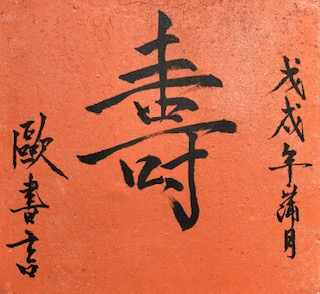 戊戌年蒲月
壽
歐書言